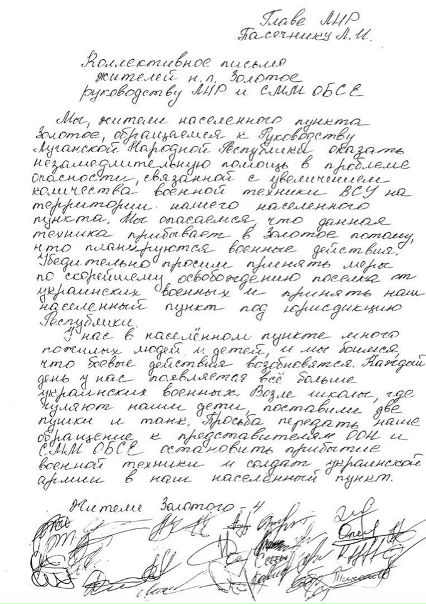 Главе ЛНР
Пасечнику Л.И.
Коллективное письмо
жителей н.п. Золотое
руководству ЛНР и СММ ОБСЕ
Мы, жители населенного пункта
Золотое, обращаемся к Руководству
Луганской Народной Республики оказать
незамедлительную помощь в проблеме
опасности, связанной с увеличением
количества военной техники ВСУ на
территории нашего населенного
пункта. Мы опасаемся, что данная
техника прибывает в Золотое потому,
что планируются военные действия.
Убедительно просим принять меры
по скорейшему освобождению поселка от
украинских военных и принять наш
населенный пункт под юрисдикцию
Республики.
У нас в населённом пункте много
пожилых людей и детей, и мы боимся,
что боевые действия возобновятся. Каждый
день у нас появляется всё больше
украинских военных. Возле школы, где
гуляют наши дети, поставили две
пушки и танк. Просьба передать наше
обращение к представителям ООН и
СММ ОБСЕ остановить прибытие
военной техники и солдат украинской
армии в наш населённый пункт.
Жители Золотого - 4